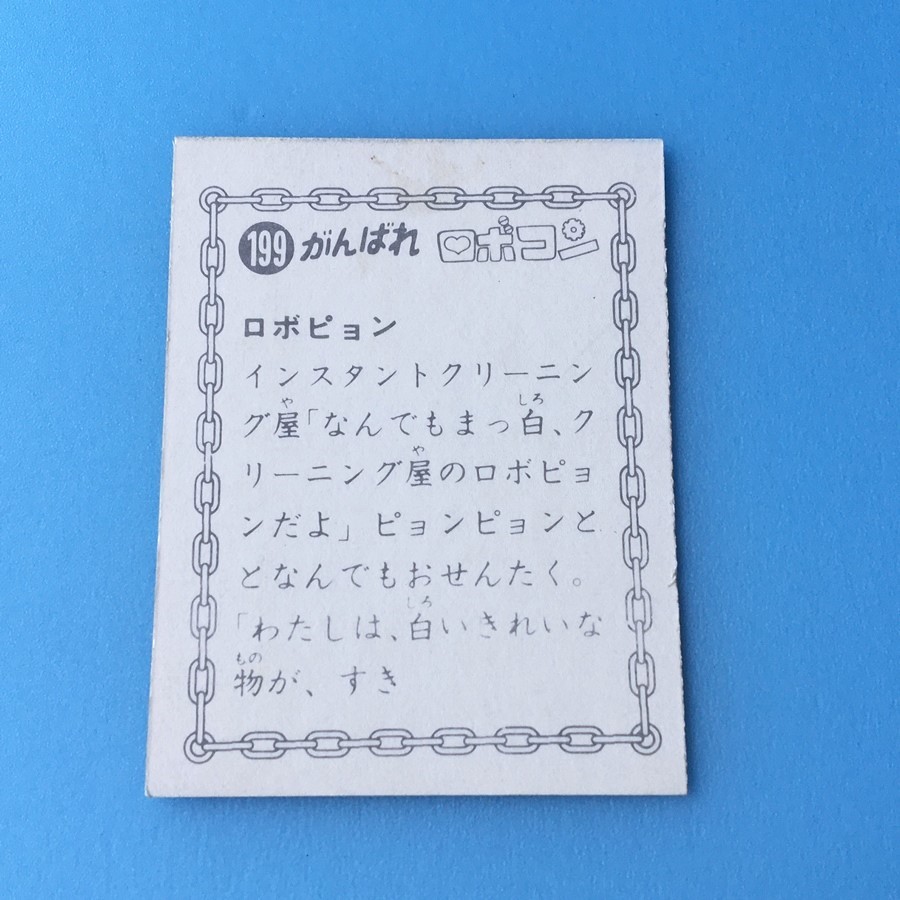 199 がんばれ ロボコン
ロボピョン
インスタントクリーニン
グ屋「なんでもまっ白、ク
リーニング屋のロボピョ
ンだよ」ピョンピョンと
となんでもおせんたく。
「わたしは、白いきれいな
物が、すき